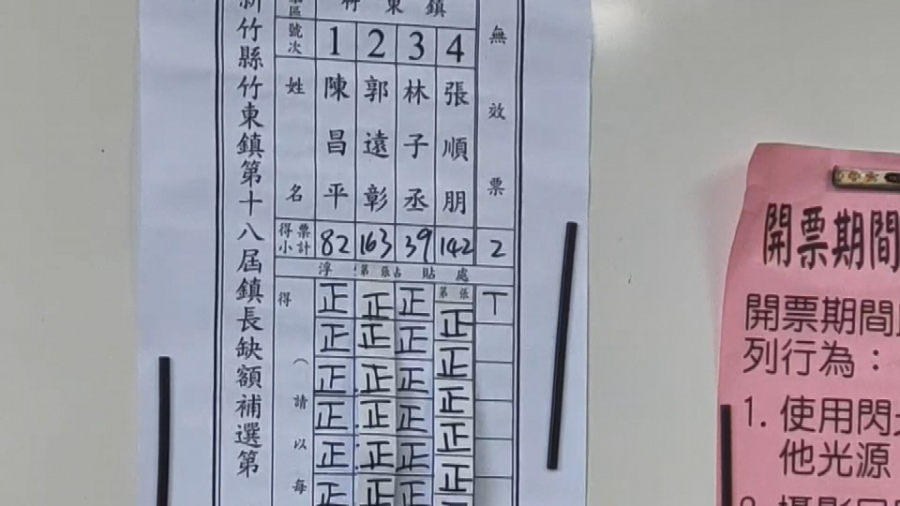 新竹縣竹東鎮第十八屆鎮長缺額補選第
區 竹東鎮
號次 1 2 3 4
姓名 陳昌平 郭遠彰 林子丞 張順朋 無效票
得票小計 82 163 39 142 2
浮 貼 處
第 張
得
(請以每
正 正 正 正 丅
正 正 正 正
正 正 正 正
正 正 正 正
正 正 正 正
正 正 正 正
開票期間
開票期間
列行為：
1. 使用閃
他光源